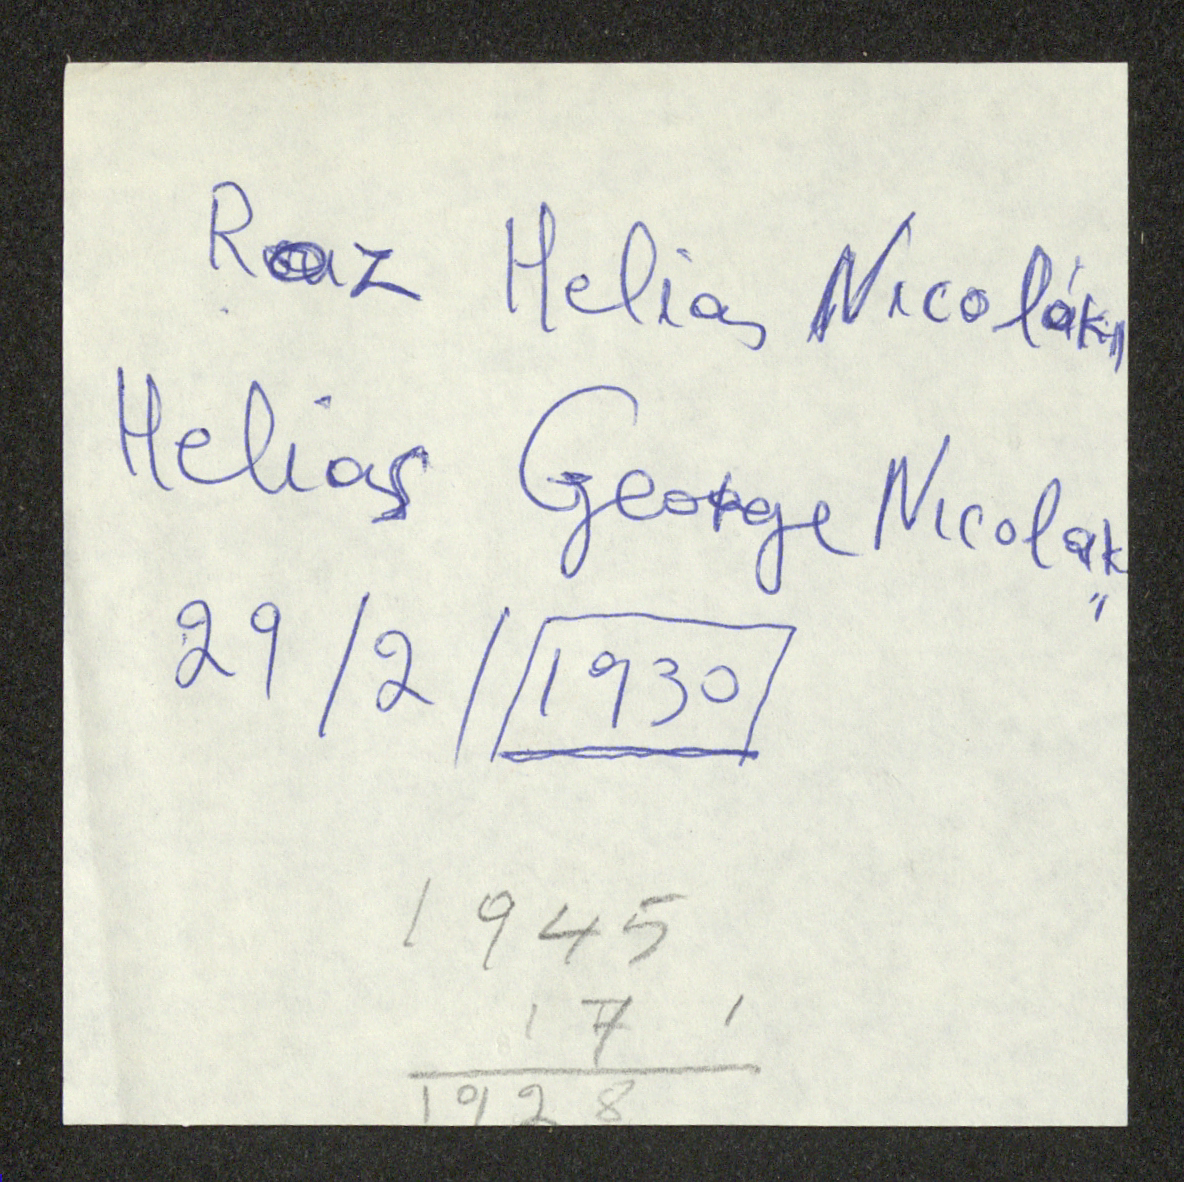 Raz Helias Nicolák"
Helias George Nicolak
"
29/2/1930
1945
17
1928